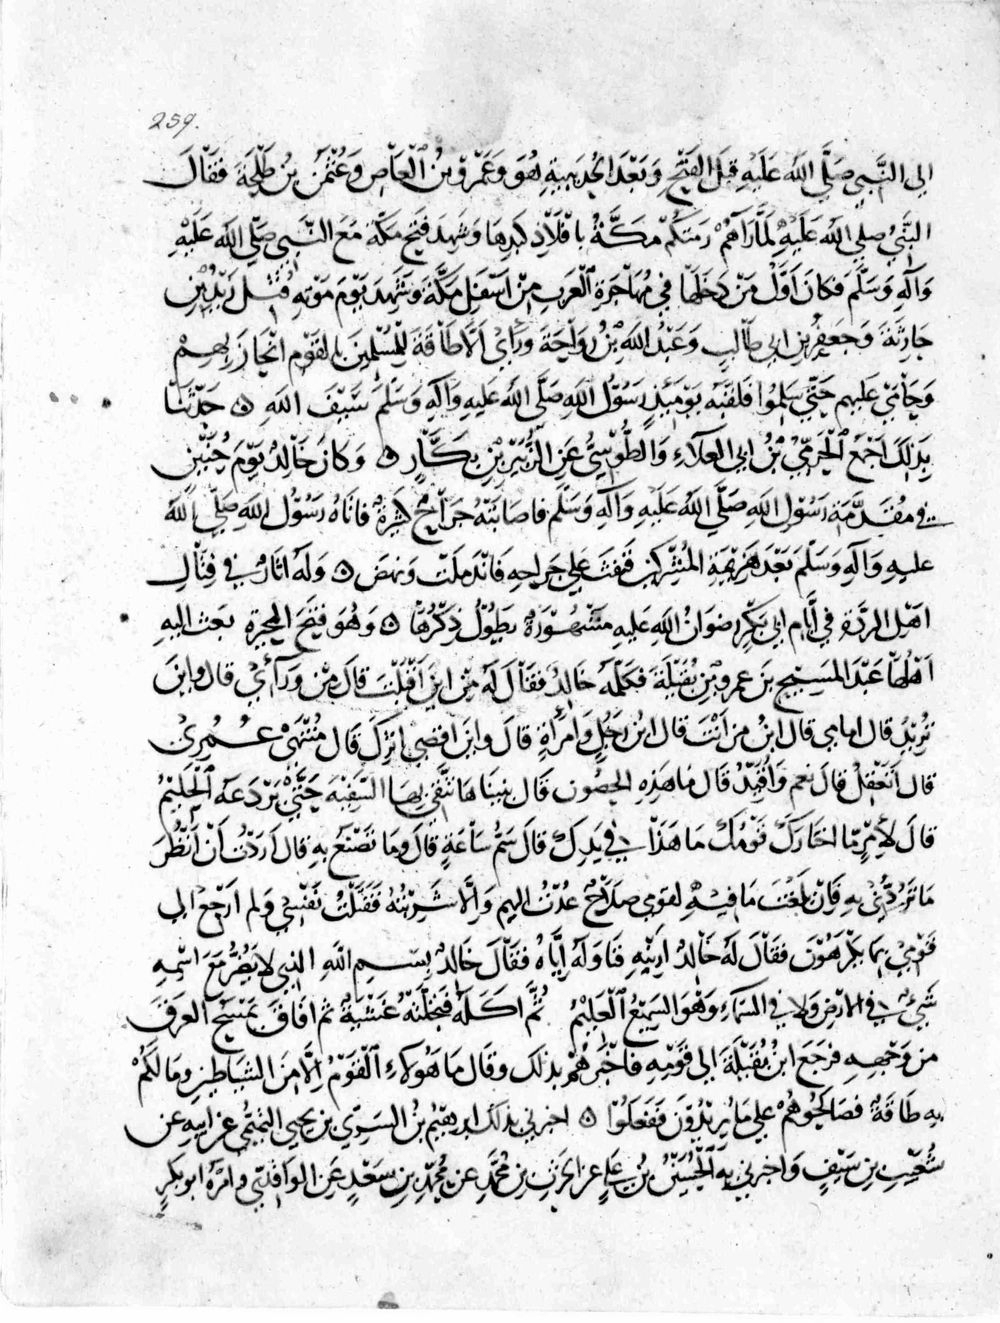 259.
الى النَّبِي صَلَّى اللهُ عَلَيْهِ قَبْلَ الفَتْحِ وَبَعْدَ الحُدَيْبِيَةِ هُوَ وَعَمْرُو بْنُ الْعَاصِ وَعُثْمَنُ بنُ طَلْحَةَ فَقَالَ
النَّبِيُّ صلى اللهُ عَلَيْهِ لَمَّا رَآهُمْ رَمَتْكُمْ مَكَّةُ بِافْلَاذِ كَبِدِهَا وَشَهِدَ فَتْحَ مَكَّةَ مَعَ النَّبِي صَلَّى الله عَلَيْهِ
وَآلِهِ وَسَلَّمَ فَكَانَ اَوَّلَ مَنْ دَخَلَهَا فِي مُهَاجِرَةِ الْعَرَبِ مِنْ اَسْفَلِ مَكَّةَ وَشَهِدَ يَوْمَ مَوْتِهِ قُتِلَ زَيْدُ بْنِ
حَارِثَةَ وَجَعْفَرُ بنِ ابى طَالِبٍ وَعَبْدُ اللهِ بْنُ رَوَاحَةَ وَرَأَى اَلَّا طَاقَةَ لِلْمُسْلِمِينَ بِالقَوْمِ انْحَازَ بِهِمْ
وَحَامَى عَلَيهِم حَتَّى سَلِمُوا فَلَقَّبَهُ يَوْمَئِذٍ رَسُوْلُ اللهِ صَلَّى اللهُ عَلَيهِ وَآلِهِ وَسَلَّمَ سَيْفَ اللهِ ه حَدَّثَنَا
بِذلِكَ اَجْمَعَ الْحَرَمِيُّ بْنُ ابى العَلَاءِ وَالطُّوْسِيُّ عَنِ الزُّبَيْرِ بْنِ بَكَّارٍ ه وَكَانَ خَالِدُ يَوْمَ حُنَيْنٍ
فى مُقَدَّمَةِ رَسُوْلِ اللهِ صَلَّى اللهُ عَلَيْهِ وَآلِهِ وَسَلَّم فاصَابَتْهُ جِرَاحٌ كَثِيرَةٌ فاتَاهُ رَسُوْلُ اللهِ صَلَّى اللهُ
عليهِ وَآلِهِ وَسَلَّمَ بَعْدَ هَزِيْمَةِ المُشْرِكِينَ فَنَفَثَ عَلَى جِرَاحِهِ فَانْدَمَلَتْ وَنَهَضَ ه وَلَهُ اثَارٌ فى قِتَالِ
اهْلِ الرِّدَّةِ فى اَيَّامِ ابى بَكْرٍ رِضوَانُ اللهِ عَلَيهِ مَشْهُوْرَةٌ يَطُوْلُ ذِكْرُهَا ه وَهُوَ فَتَحَ الحِيرَةَ بَعَثَ اليهِ
اَهْلُهَا عَبْدَ المَسِيْحِ بنَ عَمرو بْنِ بُقَيْلَةَ فَكَلَّمَهُ خَالِدٌ فَقَالَ لَهُ مِنْ ايْنَ اَقْبَلْتَ قَالَ مِنْ وَرَآئِيْ قال واينَ
تُرِيْدُ قال امامى قال ابْنُ مَنْ اَنْتَ قال ابنُ رَجُلٍ وَامْرَاَةٍ قالَ وايْنَ اقصى اثرِكَ قَالَ مُنْتَهَى عُمُرِيْ
قالَ اَتَعْقِلُ قالَ نعم وَاُقَيِّدُ قَالَ مَا هَذِهِ الحُصُون قَالَ بنينَاهَا نَتَّقِيْ بِهَا السَّفِيْهَ حَتَّى يَرْدَعَهُ الْحَلِيْمُ
قالَ لِاَمْرٍ مَا اخْتَارَكَ قَوْمُكَ مَا هَذَا فى يَدِكَ قالَ سَمُّ سَاعَةٍ قَالَ وما تَصْنَعُ بِهِ قال اَرَدْتُ اَنْ اَنْظُرَ
مَا تَرُدُّنِيْ بِهِ فَاِنْ بَلَغْتَ مَا فِيْهِ لِقَوْمِى صَلَاحٌ عُدْتُ اليهِم وَاِلَّا شَرِبْتُهُ فَقَتَلْتُ نَفْسِيْ وَلم اَرْجِعْ الى
قَوْمِيْ بِمَا يَكْرَهُوْنَ فقَالَ لَهُ خَالِدٌ اَرِنِيْهِ فَنَاوَلَهُ اِيَّاهُ فقَالَ خَالِدٌ بِسْمِ اللهِ الَّذِى لَا يَضُرُّ مَعَ اسْمِهِ
شَيْءٌ فى الارْضِ وَلا فى السَّمَاءِ وَهُوَ السَّمِيْعُ الْعَلِيْمُ ثُمَّ اكَلَهُ فَتَجَلَّتْهُ غَشْيَةٌ ثم افَاقَ يَمْسَحُ العَرَقَ
من وَجْهِهِ فرَجَعَ ابْنُ بُقَيْلَةَ الى قَوْمِهِ فاخْبَرَهُمْ بذلك وقَال مَا هَؤُلَاءِ الْقَوْمُ اِلَّا مِنَ الشَّيَاطِينِ وما لَكُمْ
بِهِمْ طَاقَةٌ فَصَالَحُوهُمْ على مَا يُرِيْدُوْنَ فَفَعَلُوْا ه اخبرنى بذلك ابرهيْمُ بنُ السَّرِيِّ بن يَحيى التَّمِيْمُى عن ابيهِ عن
شُعَيْبِ بنِ سَيْفٍ وَاخبرنى بِهِ الْحُسَيْنُ بْنُ عَلِيٍ عن الحَرِثِ بنِ مُحَمَّدٍ عن مُحَمَّدِ بنِ سَعْدٍ عَنِ الوَاقِدِيِّ وامَّرَهُ ابو بكرٍ